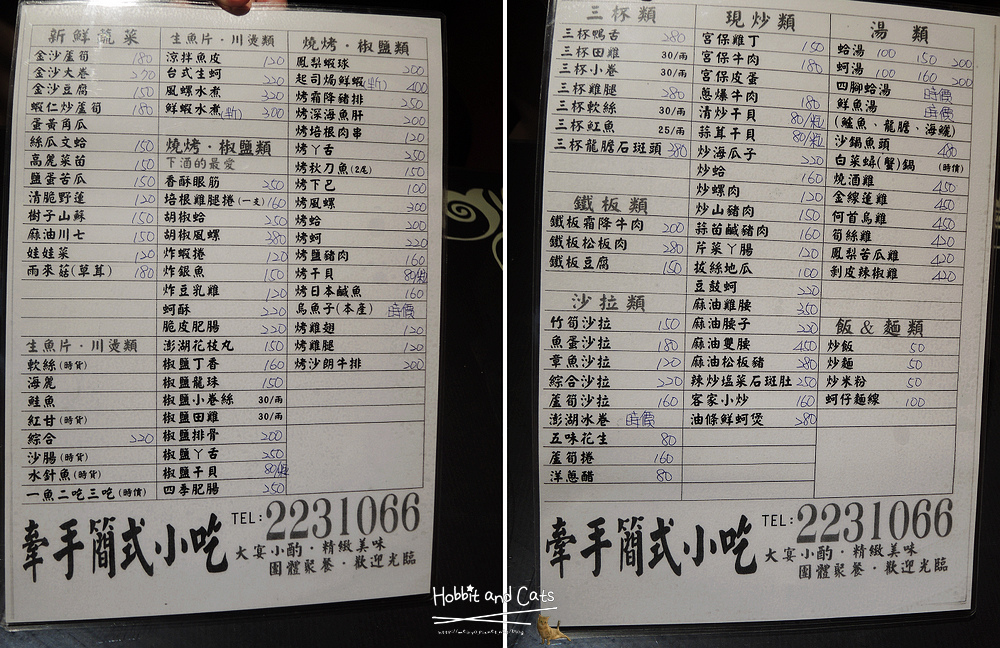 新鮮蔬菜
金沙蘆筍 180
金沙大卷 270
金沙豆腐 150
蝦仁炒蘆筍 180
蛋黃角瓜
絲瓜文蛤 150
高麗菜苗 150
鹽蛋苦瓜 150
清脆野蓮 120
樹子山蘇 150
麻油川七 150
娃娃菜 120
雨來菇(草茸) 180
生魚片·川燙類
軟絲(時貨)
海麗
鮭魚
紅甘(時貨)
綜合 220
沙腸(時貨)
水針魚(時貨)
一魚二吃三吃(時價)
生魚片·川燙類
涼拌魚皮 120
台式生蚵 220
風螺水煮 320
鮮蝦水煮(斬) 300
燒烤·椒鹽類
下酒的最愛
香酥眼筋 250
培根雞腿捲(一支) 160
胡椒蛤 250
胡椒風螺 380
炸蝦捲 120
炸銀魚 150
炸豆乳雞 120
蚵酥 220
脆皮肥腸 220
澎湖花枝丸 150
椒鹽丁香 160
椒鹽龍珠 150
椒鹽小卷絲 30/兩
椒鹽田雞 30/兩
椒鹽排骨 200
椒鹽丫舌 250
椒鹽干貝 80/粒
四季肥腸 250
燒烤·椒鹽類
鳳梨蝦球 200
起司焗鮮蝦(斬) 400
烤霜降豬排 250
烤深海魚肝 200
烤培根肉串 120
烤丫舌 250
烤秋刀魚(2尾) 150
烤下巴 100
烤風螺 300
烤蛤 200
烤蚵 220
烤鹽豬肉 160
烤干貝 80/粒
烤日本鹹魚 160
烏魚子(本產) 時價
烤雞翅 120
烤雞腿 120
烤沙朗牛排 200
牽手簡式小吃
TEL:2231066
大宴小酌·精緻美味
團體聚餐·歡迎光臨
三杯類
三杯鴨舌 280
三杯田雞 30/兩
三杯小卷 30/兩
三杯雞腿 280
三杯軟絲 30/兩
三杯魟魚 25/兩
三杯龍膽石斑頭 380
鐵板類
鐵板霜降牛肉 200
鐵板松板肉 280
鐵板豆腐 150
沙拉類
竹筍沙拉 150
魚蛋沙拉 180
章魚沙拉 120
綜合沙拉 220
蘆筍沙拉 160
澎湖冰卷 時價
五味花生 80
蘆筍捲 160
洋蔥醋 80
現炒類
宮保雞丁 150
宮保牛肉 180
宮保皮蛋
蔥爆牛肉 180
清炒干貝 80/粒
蒜茸干貝 80/粒
炒海瓜子 220
炒蛤 160
炒螺肉 120
炒山豬肉 150
蒜苗鹹豬肉 160
芹菜丫腸 120
拔絲地瓜 100
豆鼓蚵 220
麻油雞腰 350
麻油腰子 220
麻油雙腰 450
麻油松板豬 280
辣炒塩菜石斑肚 250
客家小炒 160
油條鮮蚵煲 280
湯類
蛤湯 100 150 200
蚵湯 100 160 200
四腳蛤湯 時價
鮮魚湯 時價
(鱸魚、龍膽、海鱺)
沙鍋魚頭 480
白菜蟳(蟹)鍋 (時價)
燒酒雞 450
金線蓮雞 450
何首烏雞 450
筍絲雞 420
鳳梨苦瓜雞 420
剝皮辣椒雞 420
飯&麵類
炒飯 50
炒麵 50
炒米粉 50
蚵仔麵線 100
牽手簡式小吃
TEL:2231066
大宴小酌·精緻美味
團體聚餐·歡迎光臨
Hobbit and Cats